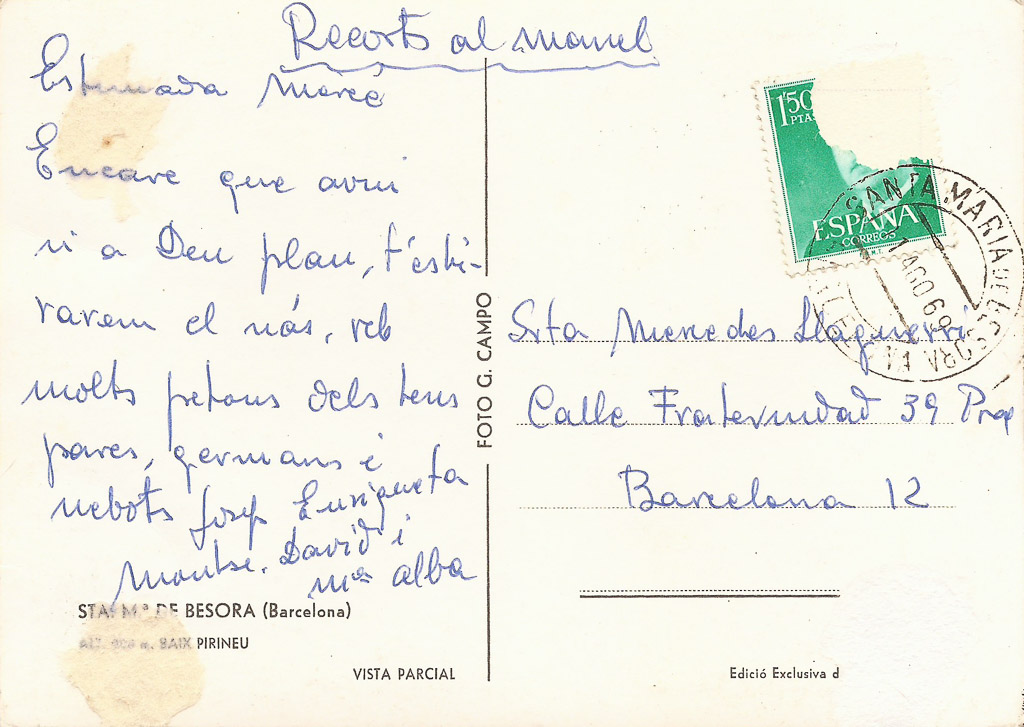 Recorts al manel
Estimada Mercé
Encare que avui
ni a Deu plan, t'esti-
rarem el nás, reb
molts petons dels teus
pares, germans i
nebots Josep Enriqueta
Montse, David i
Mª alba
STA. M.ª DE BESORA (Barcelona)
BAIX PIRINEU
VISTA PARCIAL
FOTO G. CAMPO
1'50
PTA
ESPAÑA
CORREOS
SANTA MARIA DE BESORA
1 AGO 69
Srta Mercedes Llaguerri
Calle Fraternidad 39 Pral
Barcelona 12
Edició Exclusiva d